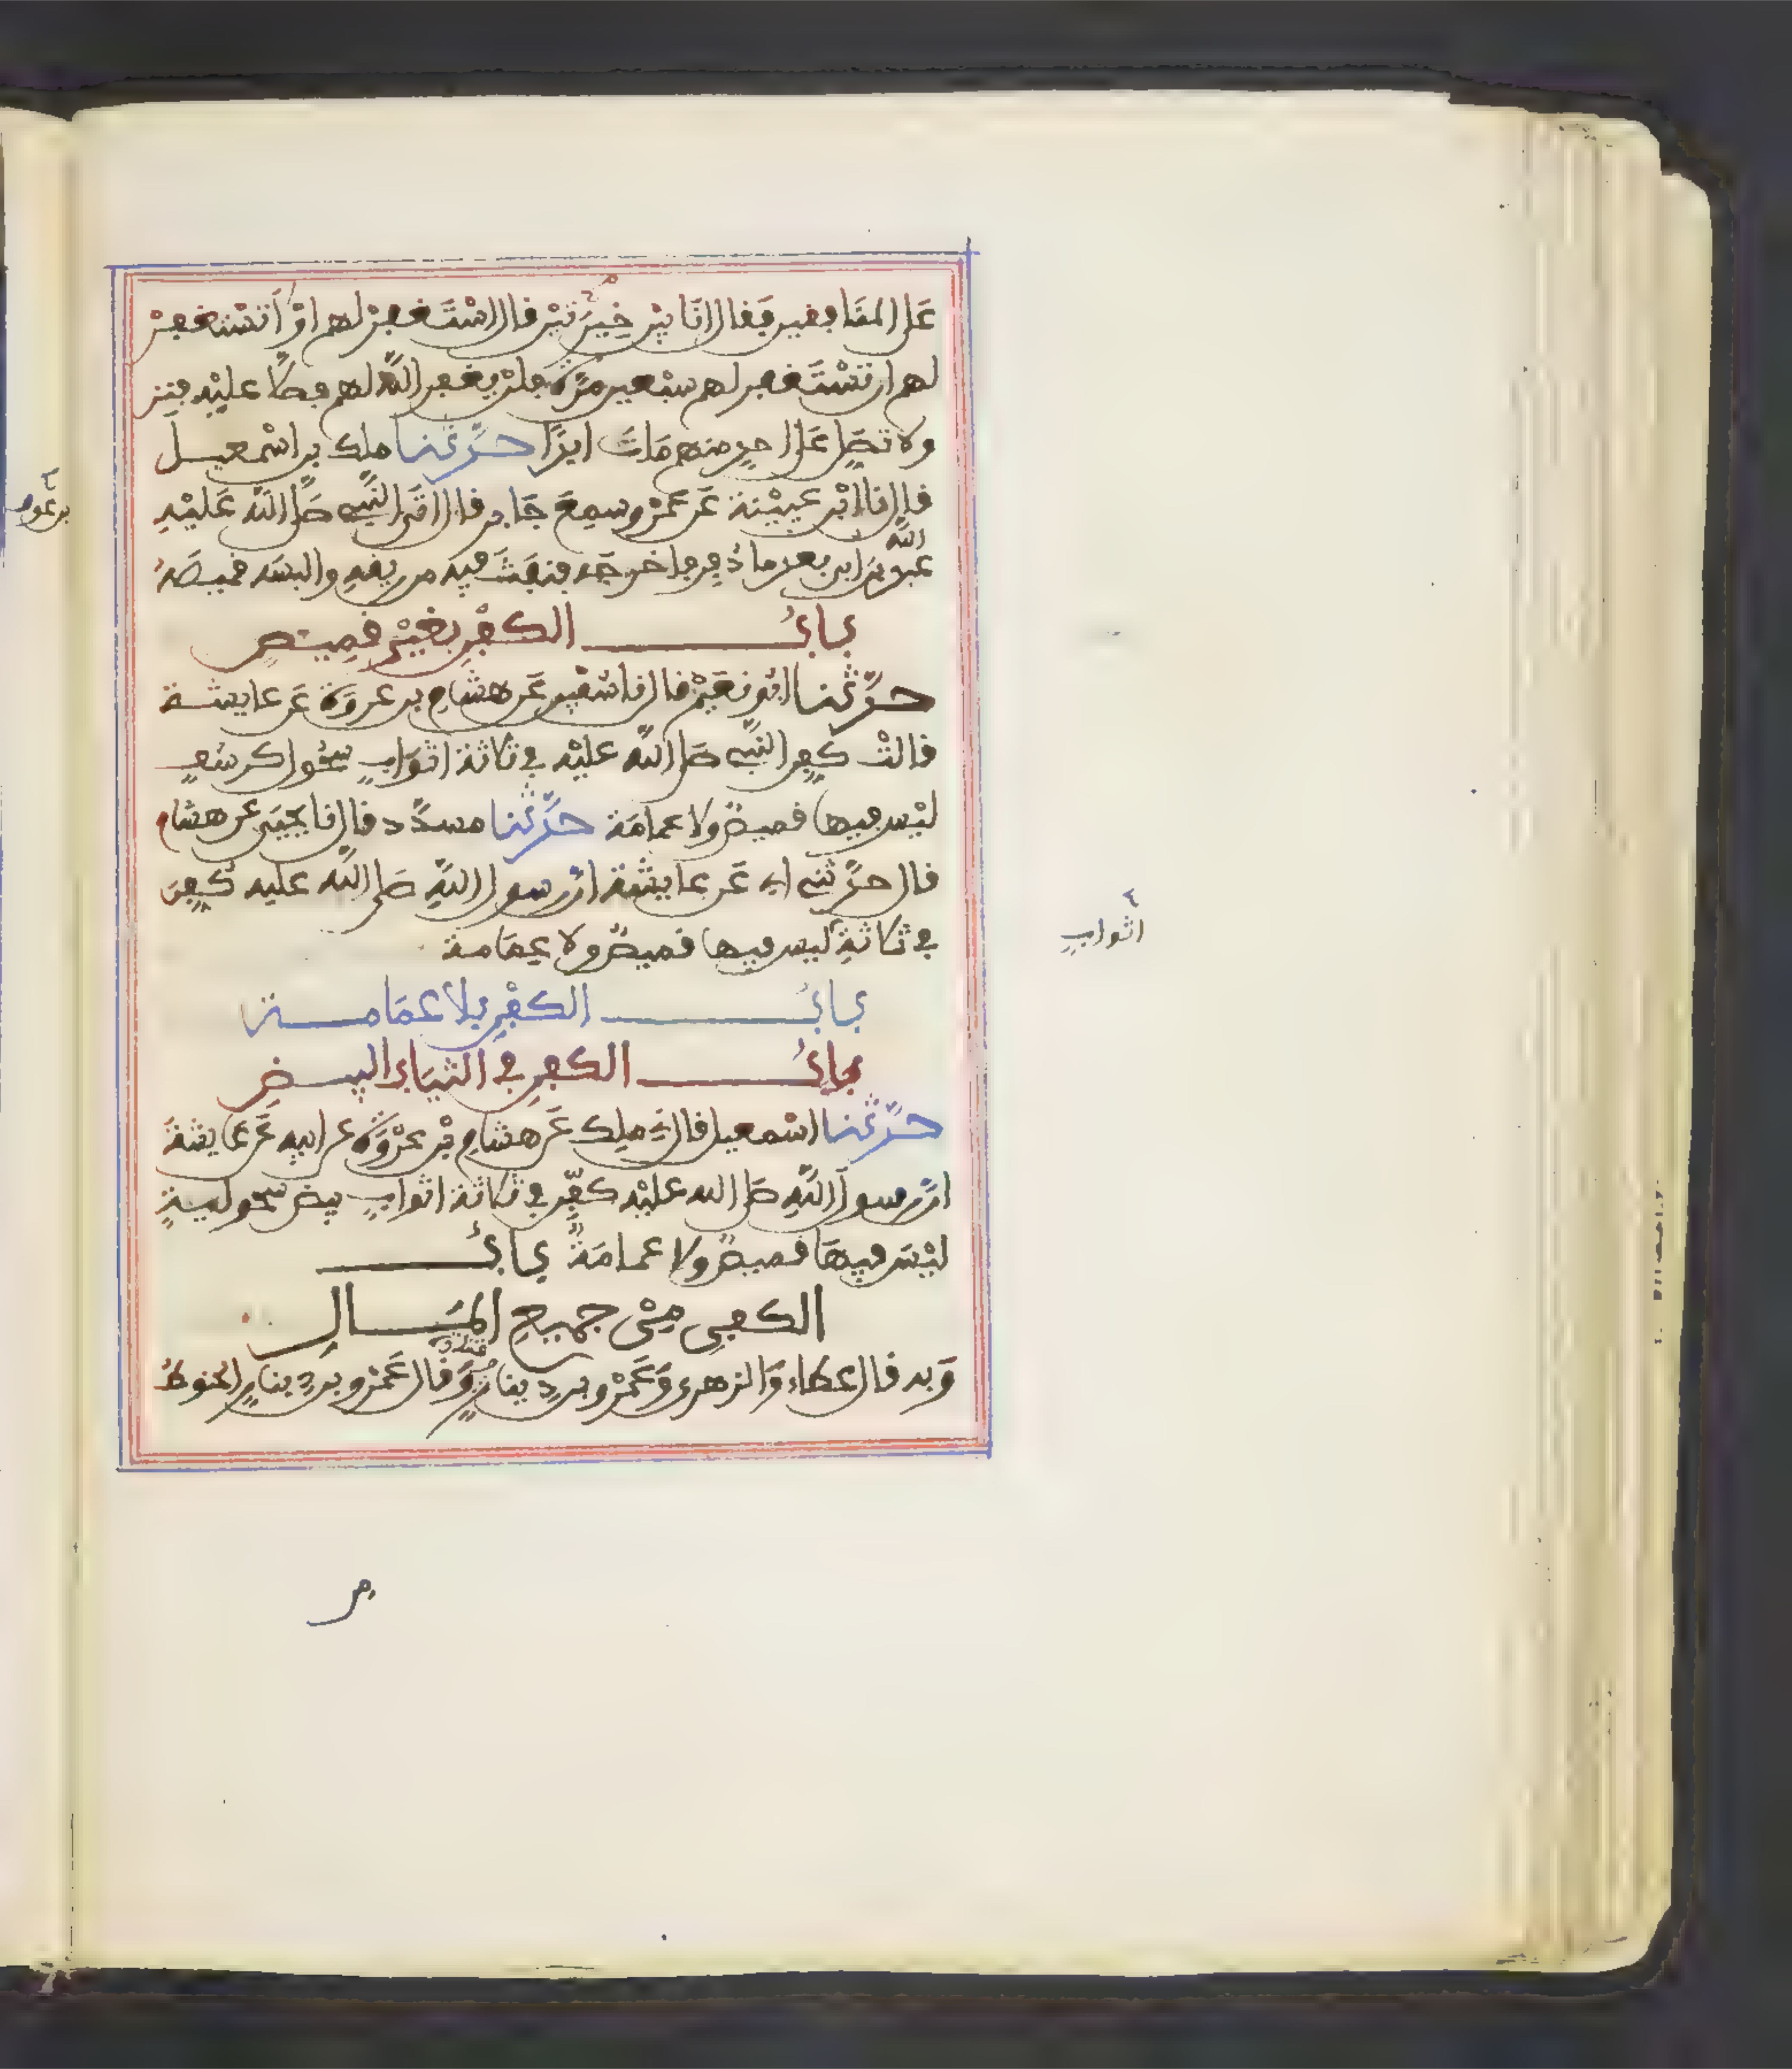 على المنافقين فقال انا بين خيرتين قال استغفر لهم او لا تستغفر
لهم ان تستغفر لهم سبعين مرة فلن يغفر الله لهم فصلى عليه فنزلت
ولا تصل على احد منهم مات ابدا حدثنا ملك بن اسمعيل
قال نا ابن عيينة عن عمرو سمع جابر قال اتى النبي صلى الله عليه
عبد الله بن ابي بعد ما دفن فاخرجه فنفث فيه من ريقه والبسه قميصه
باب الكفن بغير قميص
حدثنا ابو نعيم قال نا سفين عن هشام بن عروة عن عايشة
قالت كفن النبي صلى الله عليه في ثلاثة اثواب سحول كرسف
ليس فيها قميص ولا عمامة حدثنا مسدد قال نا يحيى عن هشام
قال حدثني ابي عن عايشة ان رسول الله صلى الله عليه كفن
في ثلاثة ليس فيها قميص ولا عمامة
اثواب
باب الكفن بلا عمامة
باب الكفن في الثياب البيض
حدثنا اسمعيل قال ني ملك عن هشام بن عروة عن ابيه عن عايشة
ان رسول الله صلى الله عليه كفن في ثلاثة اثواب بيض سحولية
ليس فيها قميص ولا عمامة باب
الكفن من جميع المال
وبه قال عطاء والزهري وعمرو بن دينار وقتادة وقال عمرو بن دينار الحنوط